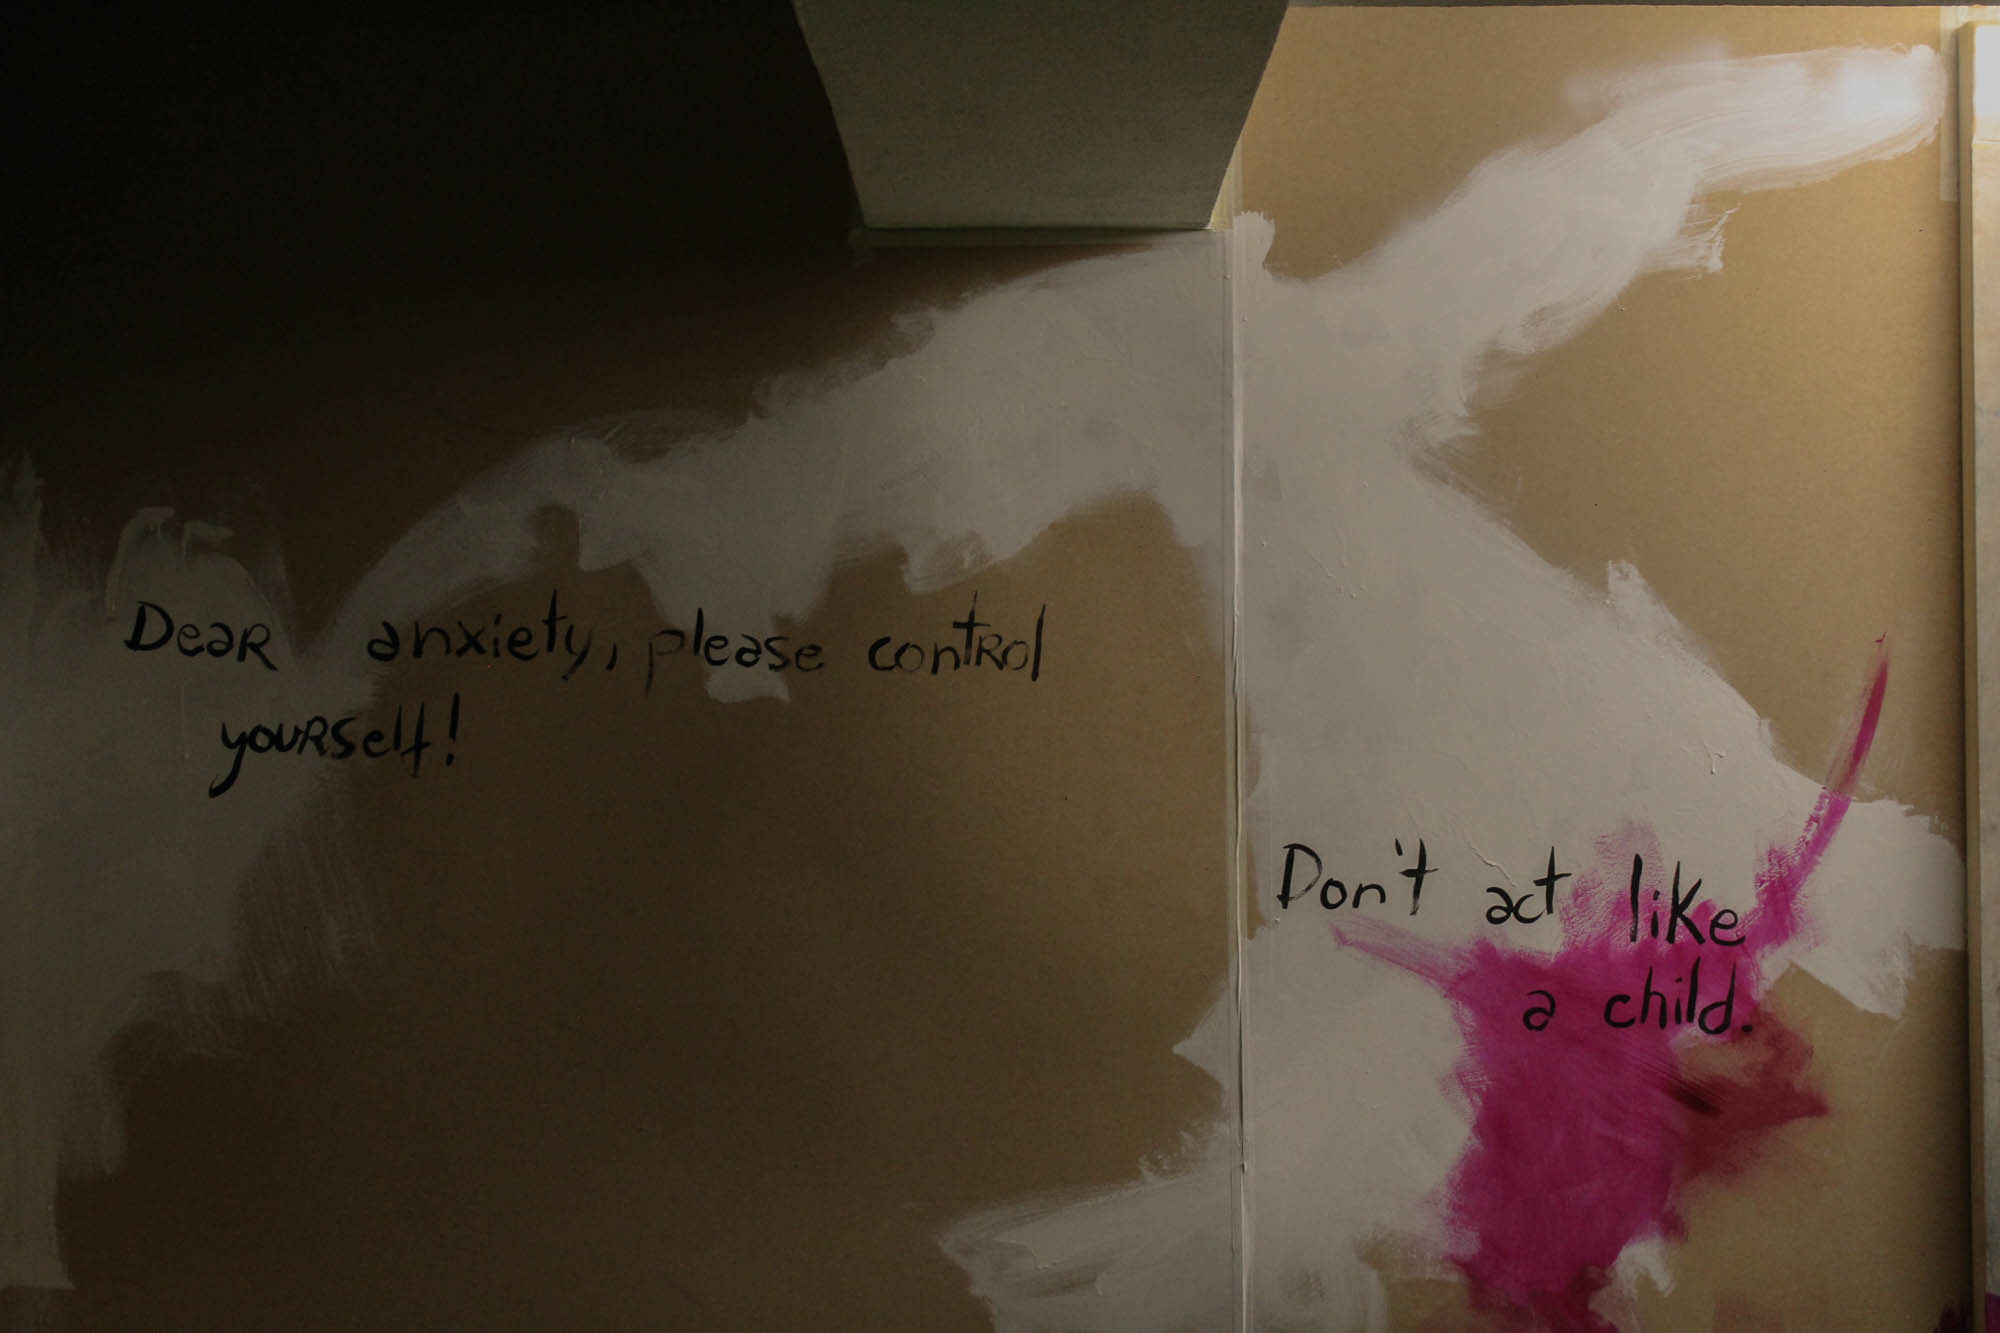 Dear anxiety, please control
yourself!
Don't act like
a child.